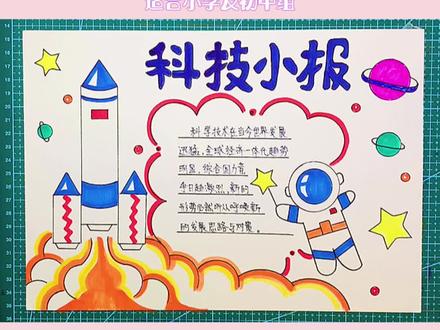 适合小学及初中组
科技小报
科学技术在当今世界发展
迅猛,全球经济一体化趋势
明显,综合国力竞
争日趋激烈,新的
形势必就所从呼唤新
的发展思路与对策。